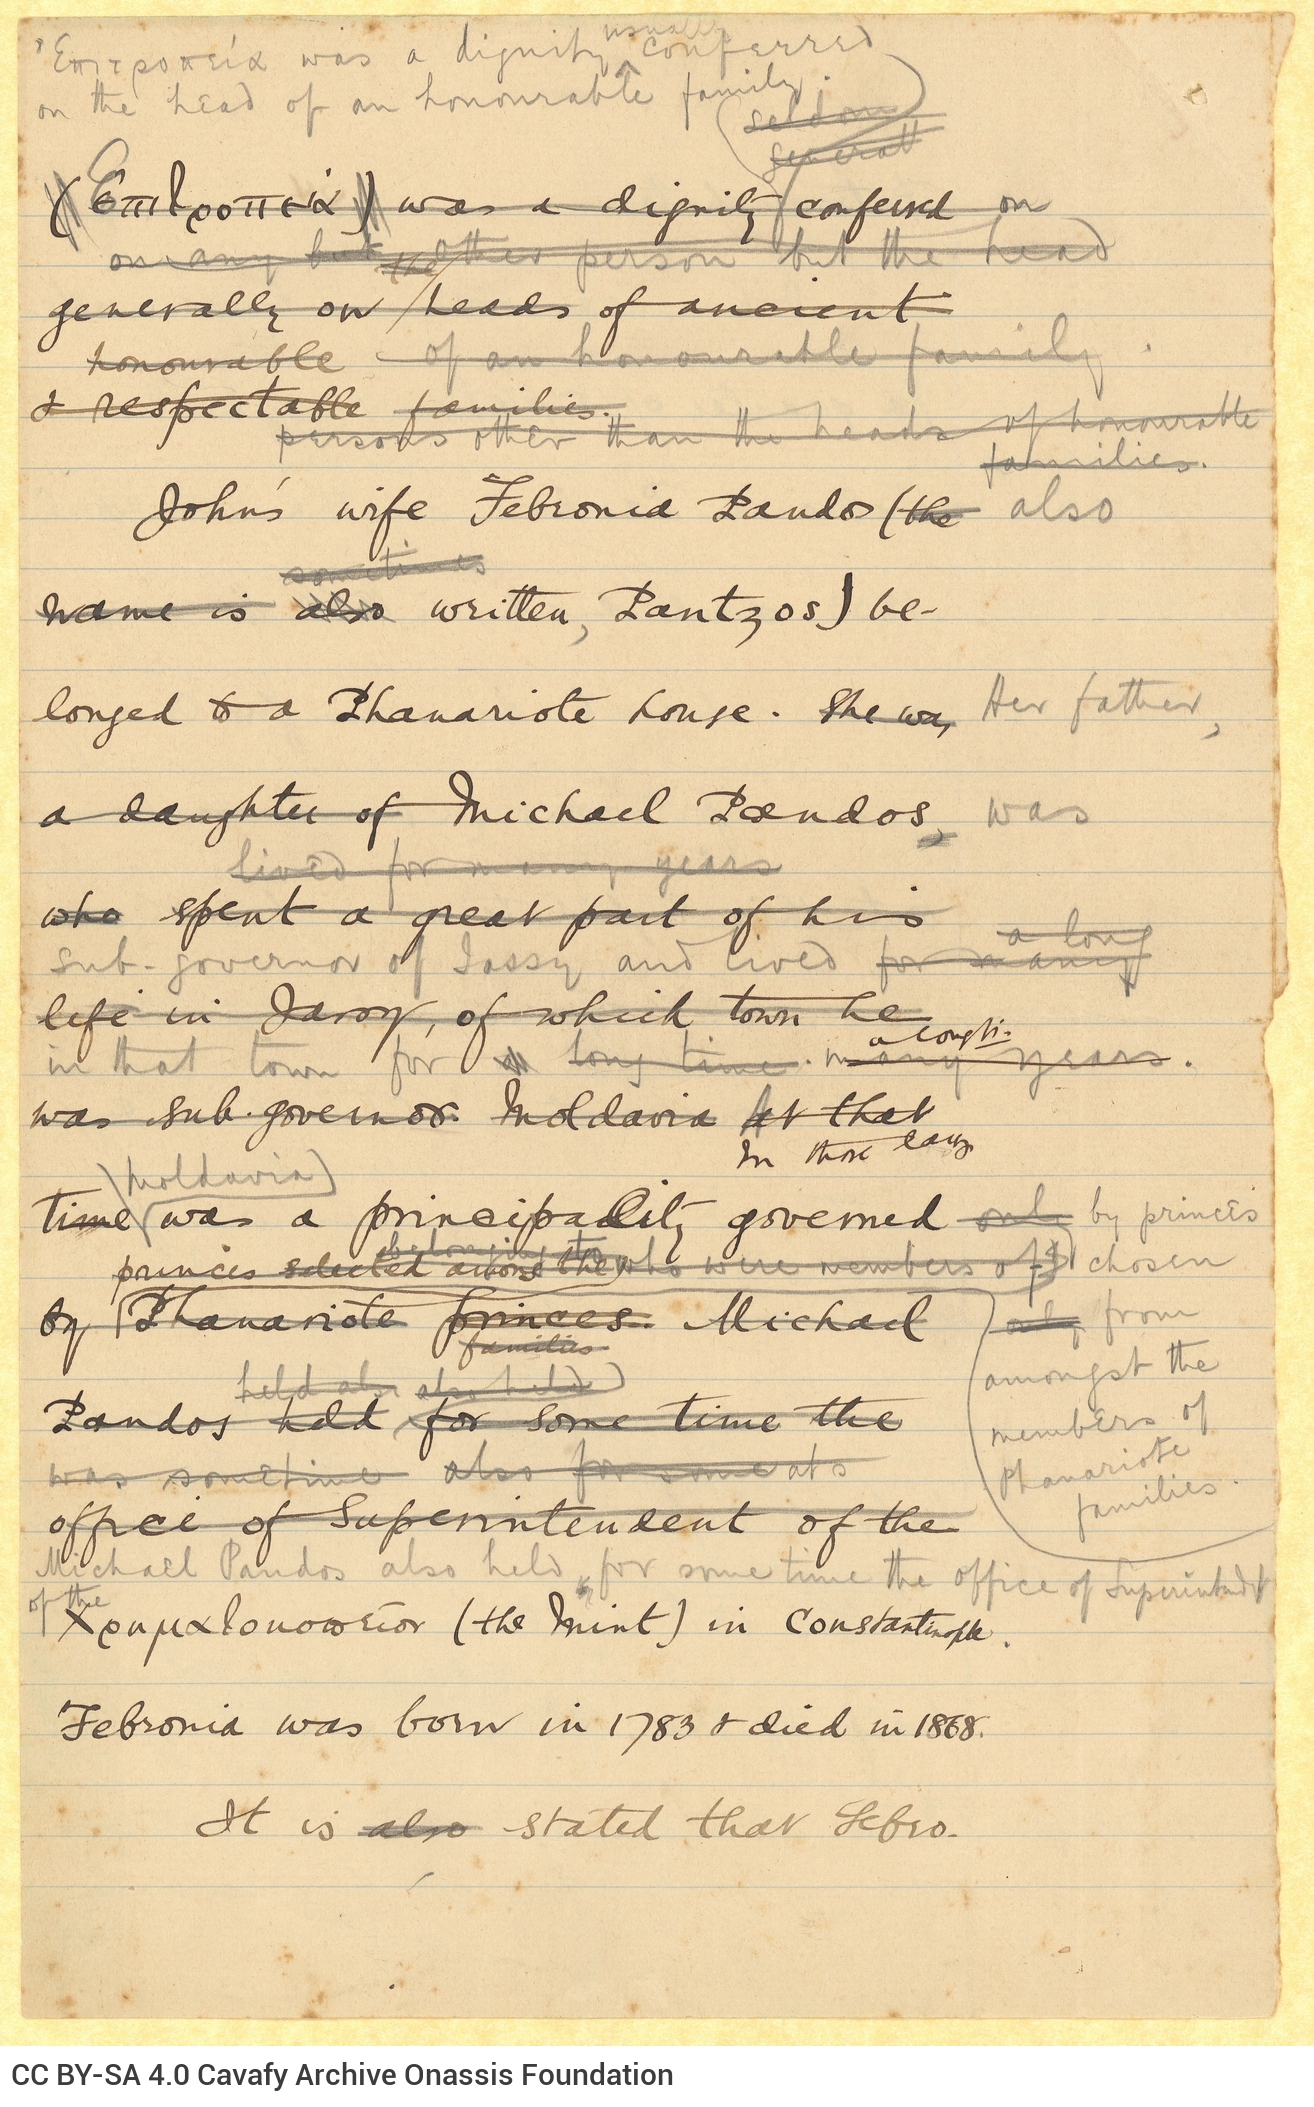 Ἐπιτροπεία was a dignity usually conferred
on the head of an honourable family.
seldom
generall
(Επιτροπεία) was a dignity conferred on
on any but the other person but the head
generally on heads of ancient
honourable of an honourable family.
& respectable families.
persons other than the heads of honourable
families.
John's wife Febronia Pandos (the also
sometimes
name is also written, Pantzos) be-
longed to a Phanariote house. She was Her father,
a daughter of Michael Pandos, was
lived for many years
who spent a great part of his
a long
sub-governor of Jassy and lived for many
life in Jassy, of which town he
in that town for long time. many years.
was sub-governor. Moldavia At that
In those days
Moldavia
time was a principality governed only by princes
belonging to
princes selected among the who were members of chosen
by Phanariote princes. Michael only from
families
amongst the
held also also held
Pandos held for some time the
members of
was sometime also for some
Phanariote
families.
office of Superintendent of the
Michael Pandos also held, for some time the office of Superintendt
of the
Χρηματοκοπεῖον (the Mint) in Constantinople.
Febronia was born in 1783 & died in 1868.
It is also stated that Febro-
CC BY-SA 4.0 Cavafy Archive Onassis Foundation